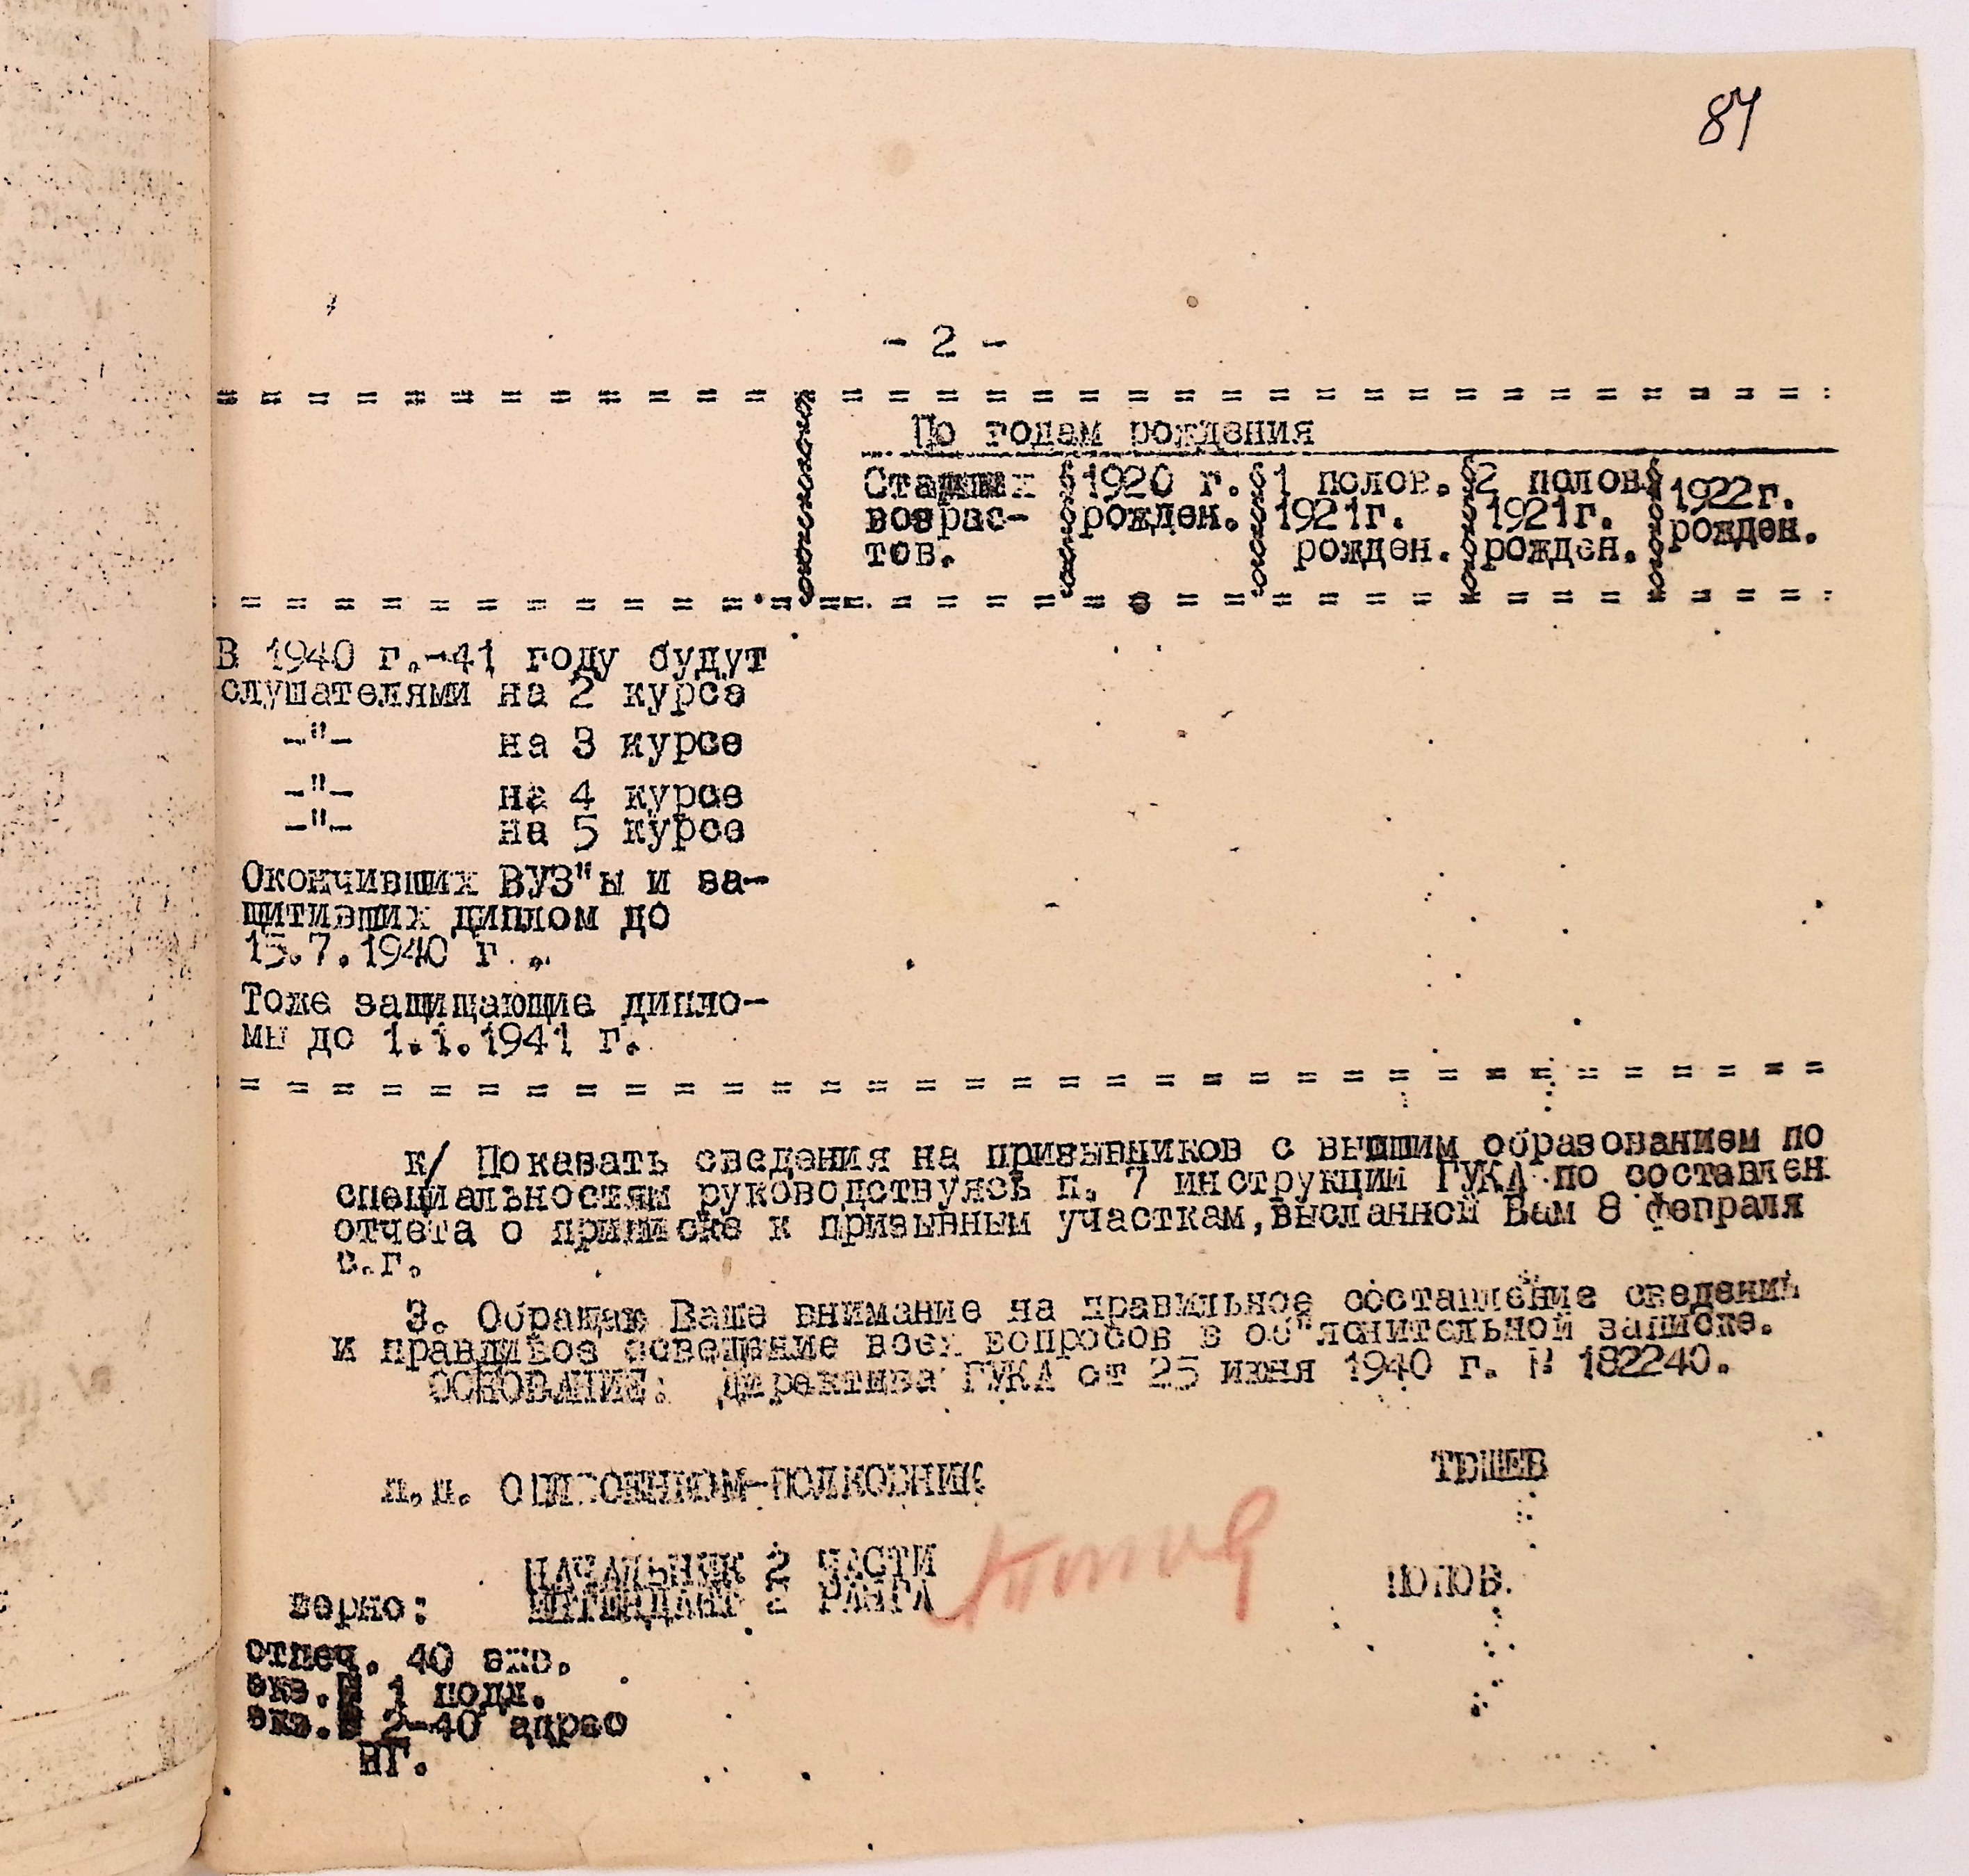 87
- 2 -
По годам рождения
Старших § 1920 г. § 1 полов. § 2 полов § 1922г.
возрас- § рожден. § 1921г. § 1921г. § рожден.
тов. § § рожден. § рожден. §
В 1940 г.-41 году будут
слушателями на 2 курсе
-"- на 3 курсе
-"- на 4 курсе
-"- на 5 курсе
Окончивших ВУЗ"ы и за-
щитивших диплом до
15.7.1940 г.
Тоже защищающие дипло-
мы до 1.1.1941 г.
к/ Показать сведения на призывников с высшим образованием по
специальностям руководствуясь п. 7 инструкции ГУКА по составлен
отчета о приписке к призывным участкам, высланной Вам 8 февраля
с.г.
3. Обращаю Ваше внимание на правильное составление сведений
и правдивое освещение всех вопросов в об"яснительной записке.
ОСНОВАНИЕ: Директива ГУКА от 25 июня 1940 г. № 182240.
п.п. ОБЛВОЕНКОМ-ПОЛКОВНИК
НАЧАЛЬНИК 2 ЧАСТИ
верно: ИНТЕНДАНТ 2 РАНГА ПОПОВ.
отпеч. 40 экз.
экз.№ 1 подл.
экз.№ 2-40 адрес
НГ.